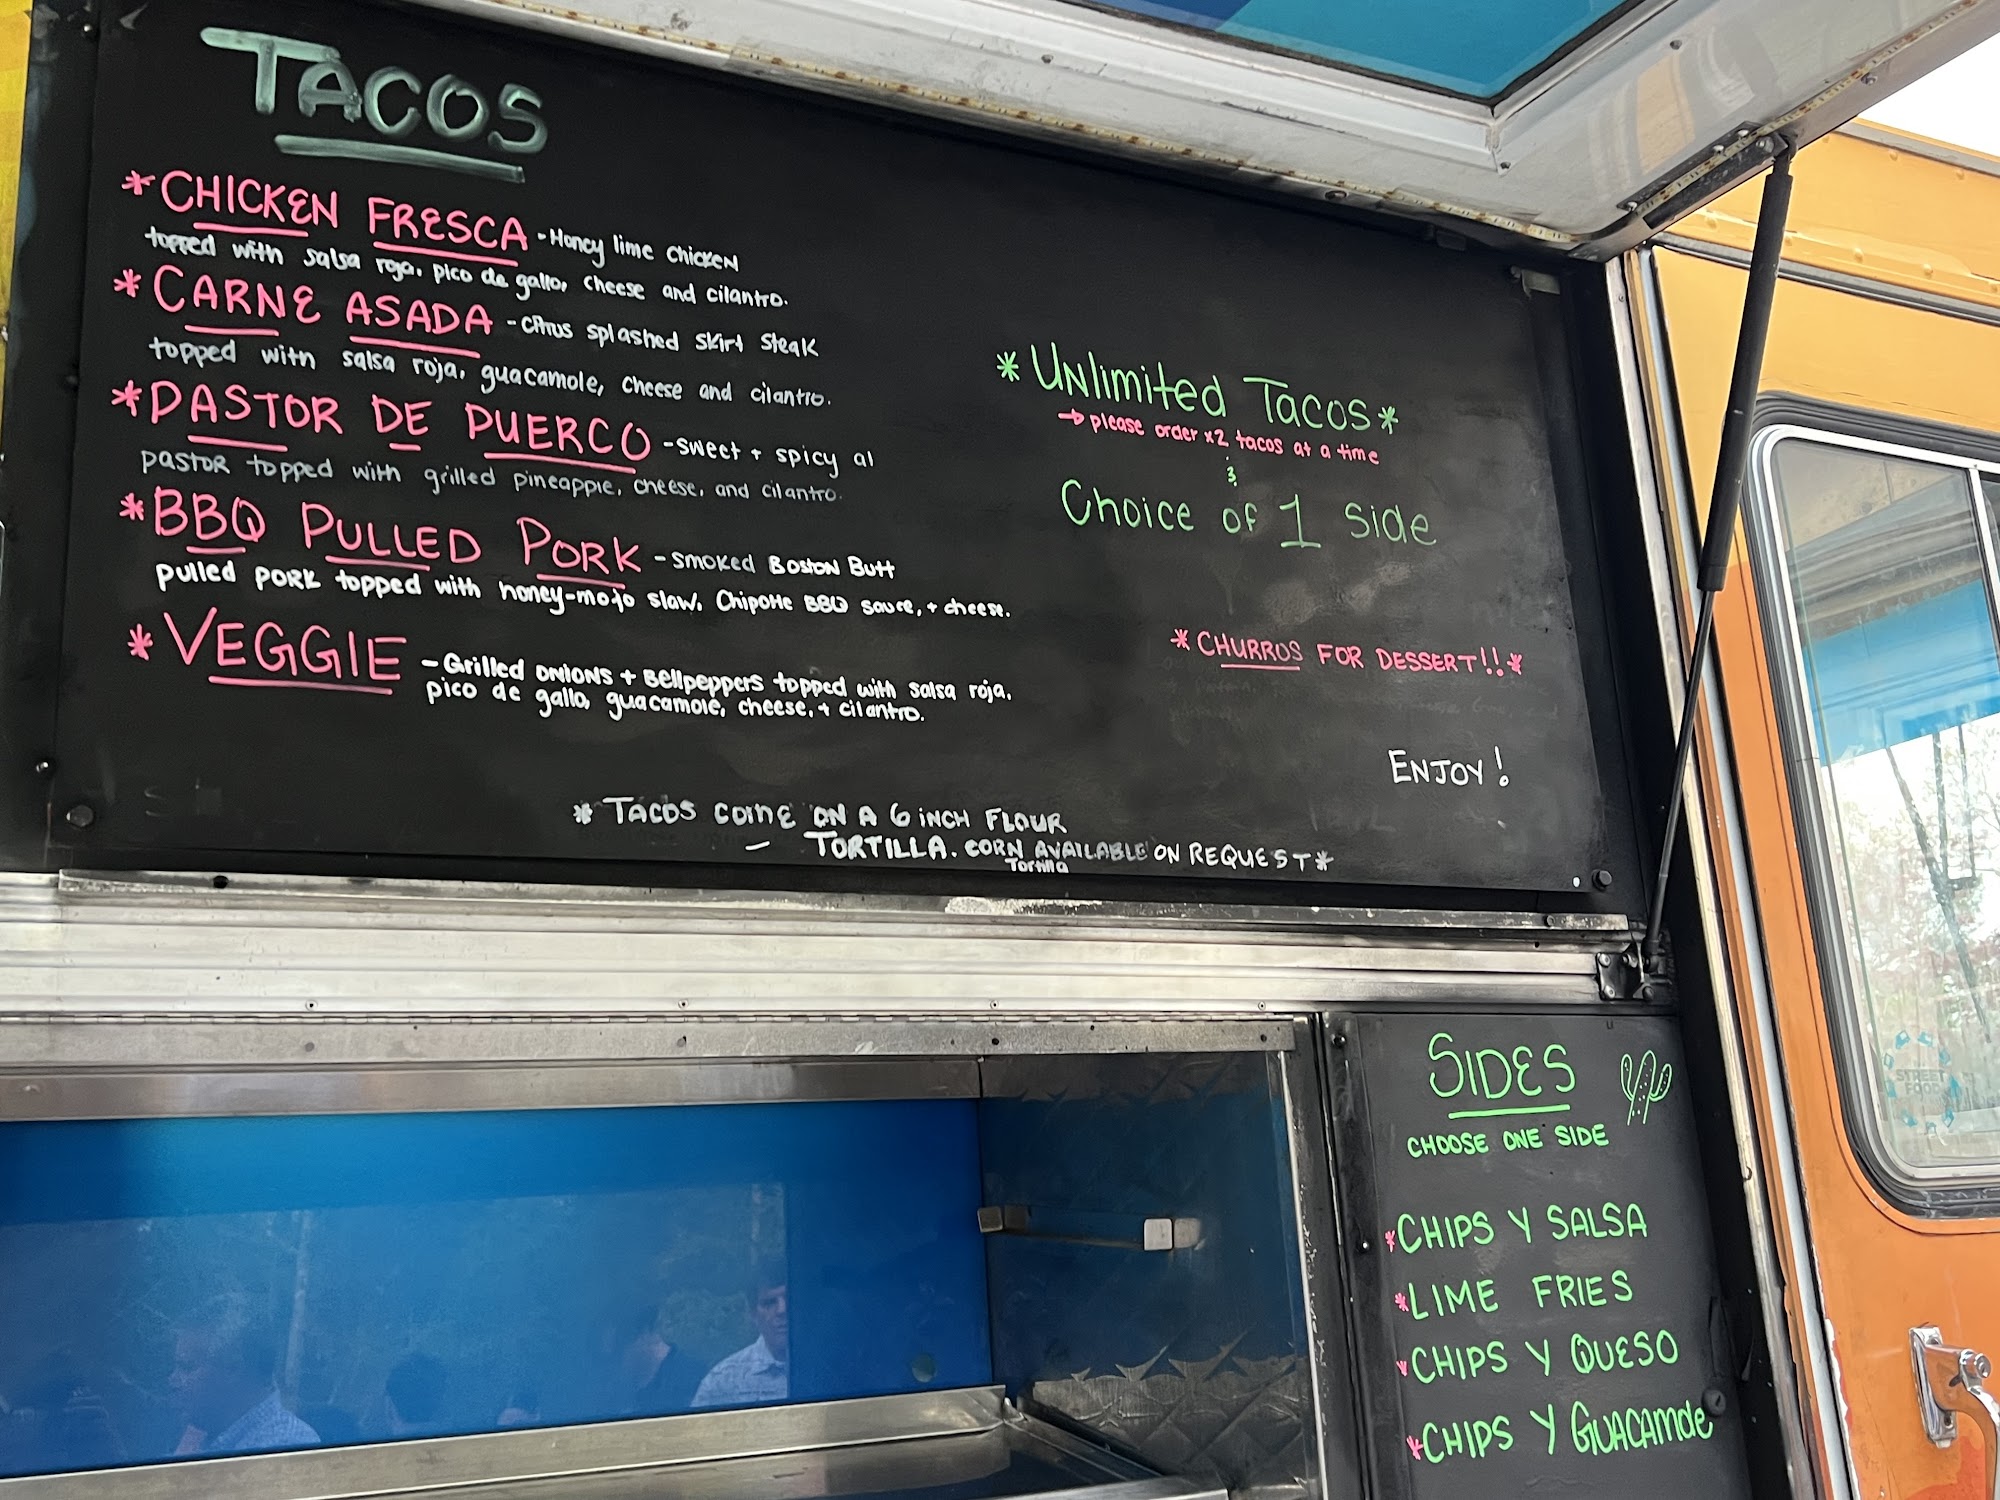 TACOS
*CHICKEN FRESCA - Honey lime chicken
topped with salsa roja, pico de gallo, cheese and cilantro.
*CARNE ASADA - citrus splashed skirt steak
topped with salsa roja, guacamole, cheese and cilantro.
*PASTOR DE PUERCO - sweet + spicy al
pastor topped with grilled pineapple, cheese, and cilantro.
*BBQ PULLED PORK - smoked Boston Butt
pulled pork topped with honey-mojo slaw, Chipotle BBQ sauce, + cheese.
*VEGGIE - Grilled onions + Bellpeppers topped with salsa roja,
pico de gallo, guacamole, cheese, + cilantro.
*Unlimited Tacos*
→ please order x2 tacos at a time
&
Choice of 1 side
*CHURROS FOR DESSERT!!*
ENJOY!
*TACOS COME ON A 6 INCH FLOUR
— TORTILLA. CORN AVAILABLE ON REQUEST*
Tortilla
SIDES
CHOOSE ONE SIDE
*CHIPS Y SALSA
*LIME FRIES
*CHIPS Y QUESO
*CHIPS Y GUACAMOLE
STREET
FOOD